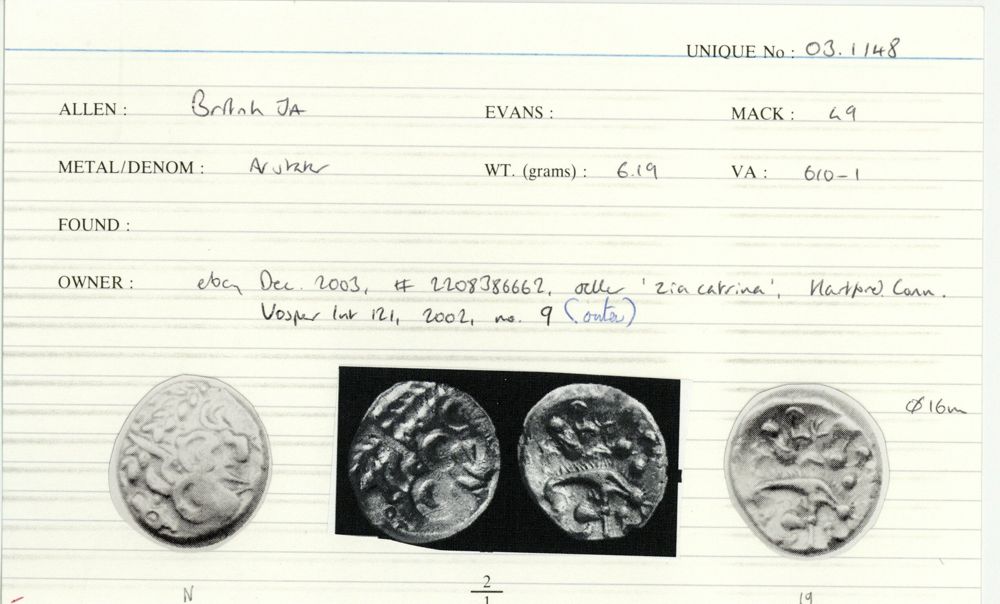 UNIQUE No : 03.1148
ALLEN : British JA EVANS : MACK : 49
METAL/DENOM : AV stater WT. (grams) : 6.19 VA : 610-1
FOUND :
OWNER : ebay Dec. 2003, # 2208386662, seller 'zia catrina', Hartford Conn.
Vosper list 121, 2002, no. 9 (outer)
Ø 16m
N 2 19
1